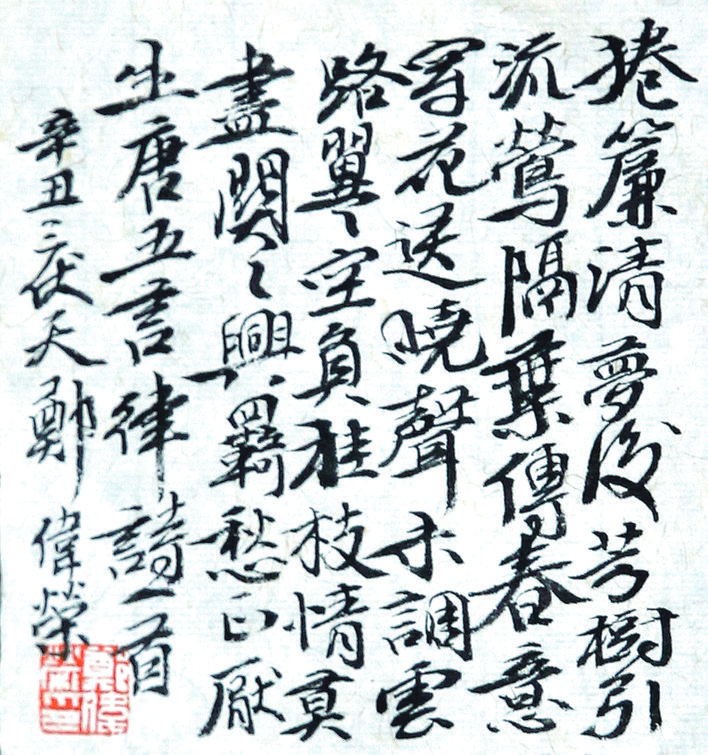 捲簾清夢後芳樹引
流鶯隔葉傳春意
穿花送曉聲未調雲
路翼空負桂枝情莫
盡關〻興羈愁正厭
生唐五言律詩一首
辛丑伏天鄭偉榮
鄭偉榮印